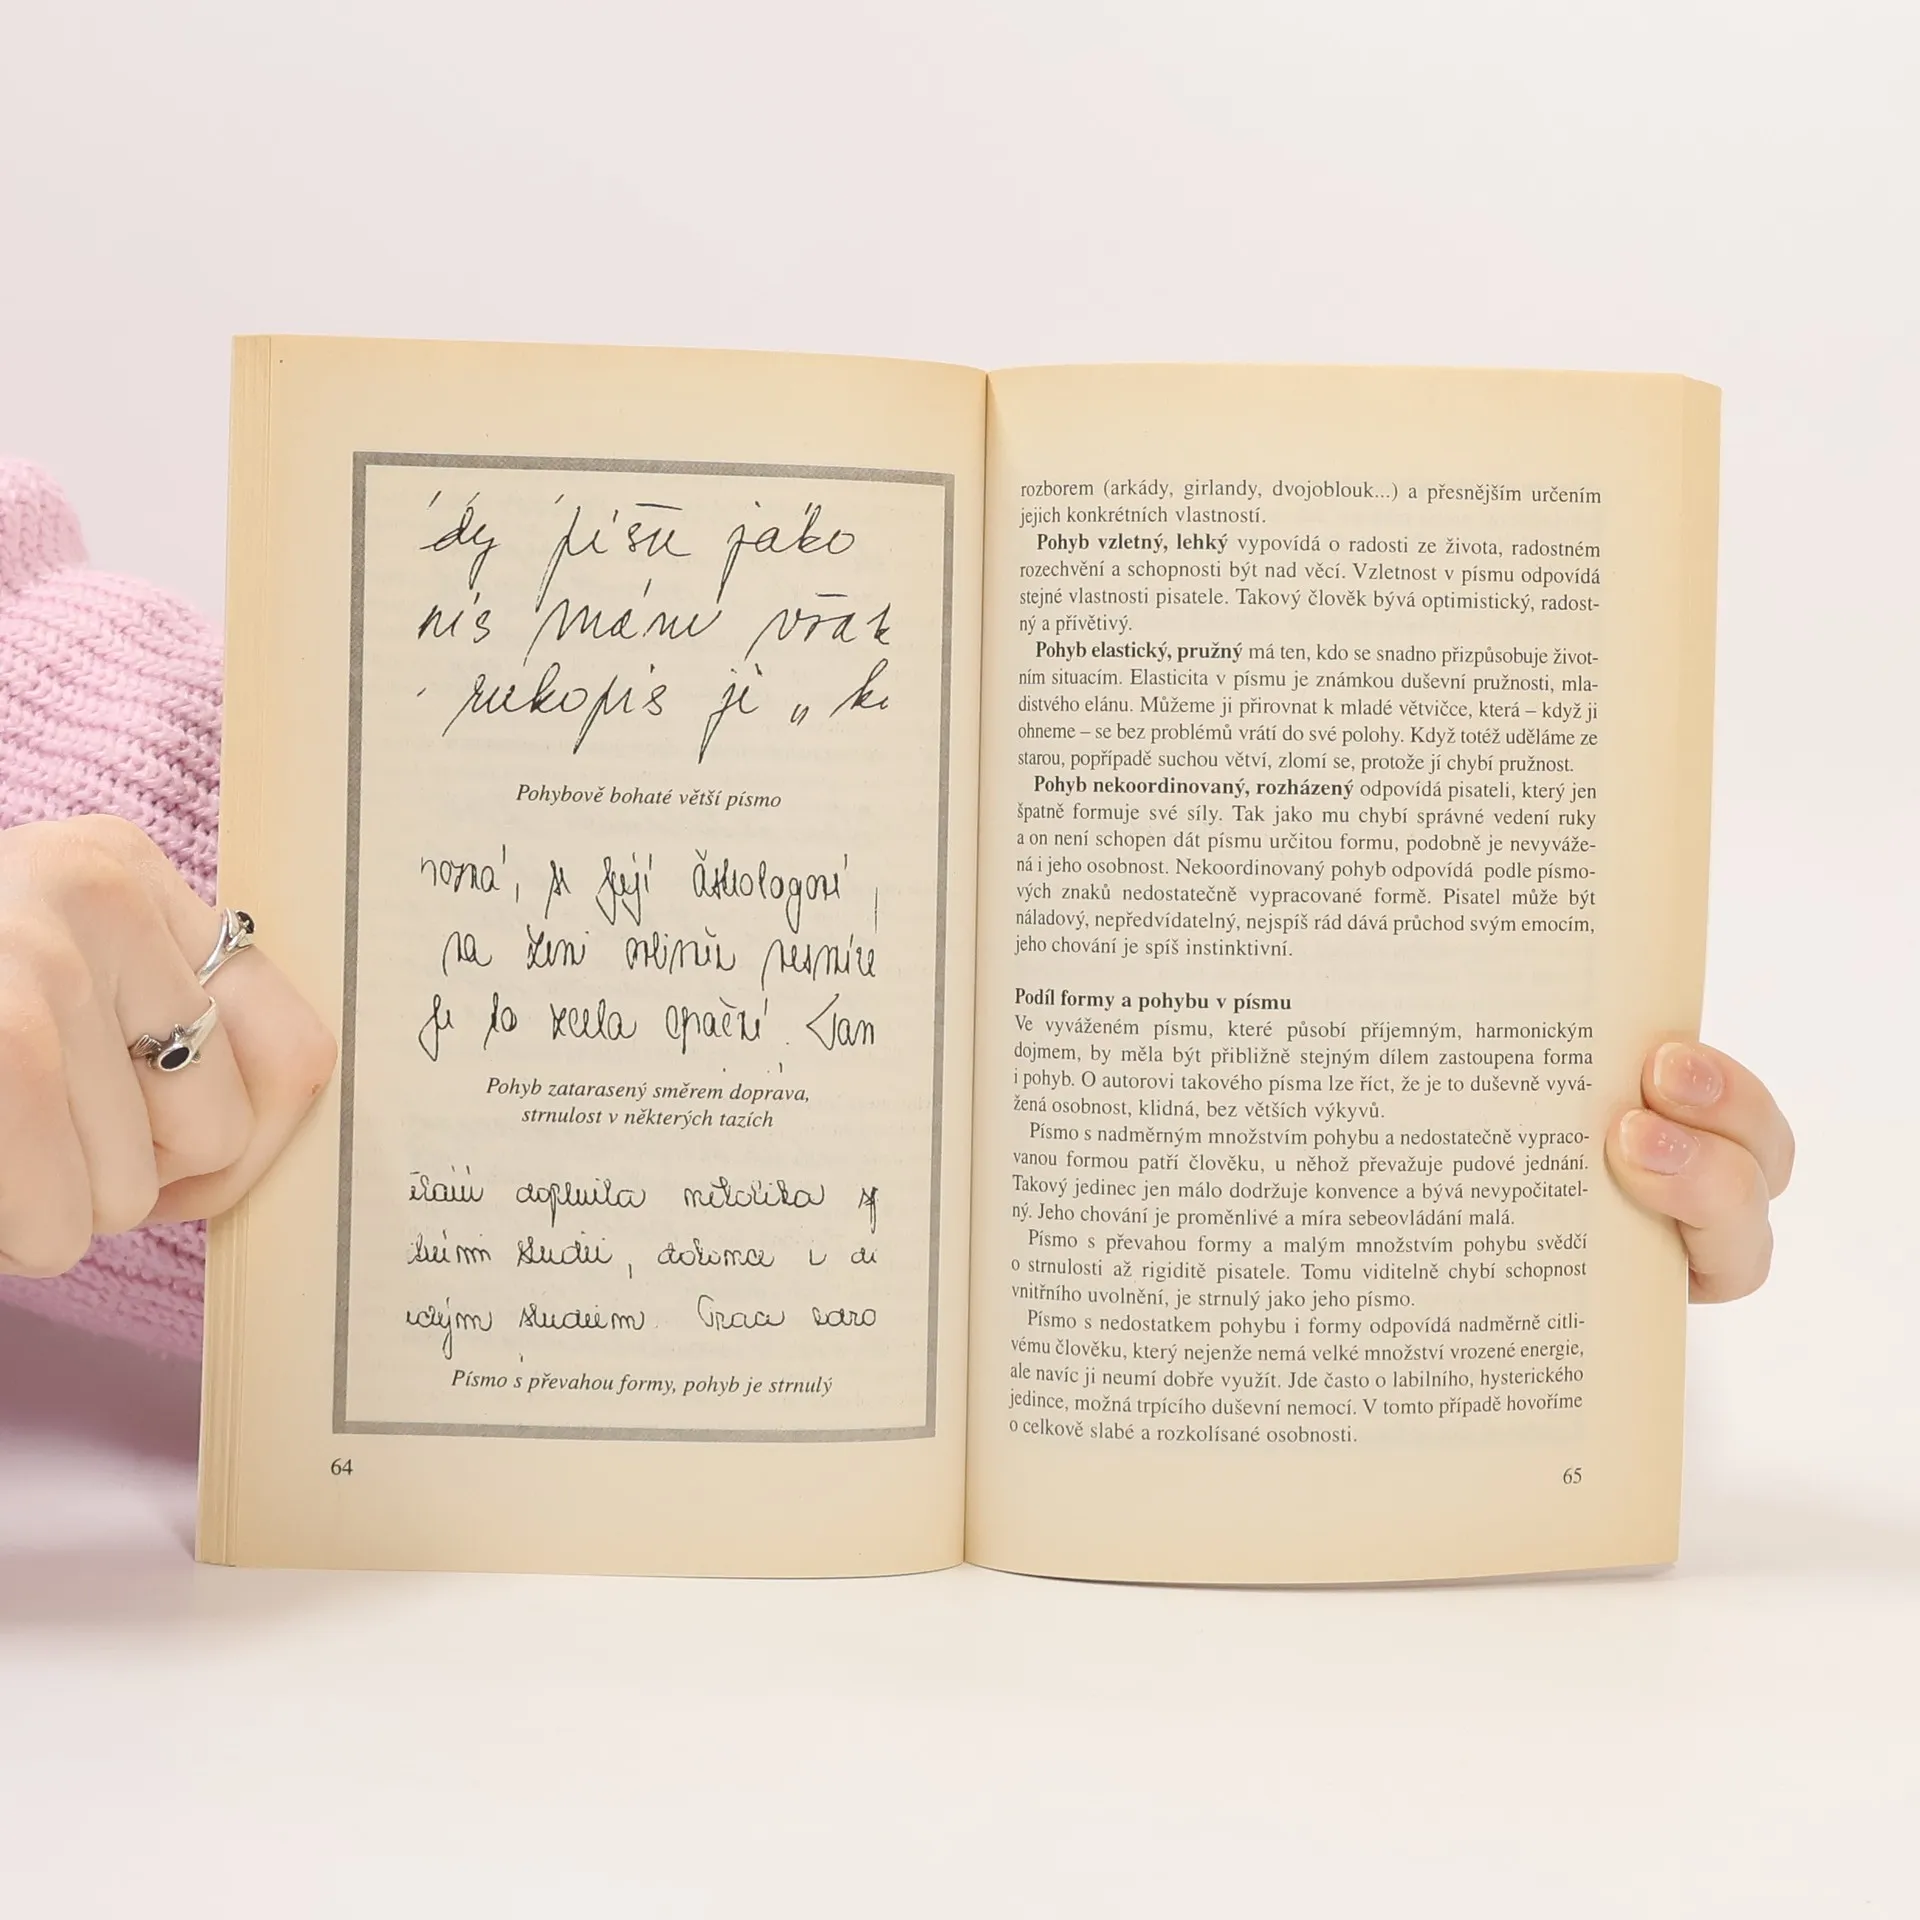 píšu jako
máme však
rukopis je „ ke
Pohybově bohaté větší písmo
, se její astrologové
na ženu
je to zcela opačné. Tan
Pohyb zatarasený směrem doprava,
strnulost v některých tazích
doplnila několika
studii, dokonce i
studiem. Práce
Písmo s převahou formy, pohyb je strnulý
64
rozborem (arkády, girlandy, dvojoblouk...) a přesnějším určením
jejich konkrétních vlastností.
Pohyb vzletný, lehký vypovídá o radosti ze života, radostném
rozechvění a schopnosti být nad věcí. Vzletnost v písmu odpovídá
stejné vlastnosti pisatele. Takový člověk bývá optimistický, radost-
ný a přívětivý.
Pohyb elastický, pružný má ten, kdo se snadno přizpůsobuje život-
ním situacím. Elasticita v písmu je známkou duševní pružnosti, mla-
distvého elánu. Můžeme ji přirovnat k mladé větvičce, která – když ji
ohneme – se bez problémů vrátí do své polohy. Když totéž uděláme ze
starou, popřípadě suchou větví, zlomí se, protože jí chybí pružnost.
Pohyb nekoordinovaný, rozházený odpovídá pisateli, který jen
špatně formuje své síly. Tak jako mu chybí správné vedení ruky
a on není schopen dát písmu určitou formu, podobně je nevyváže-
ná i jeho osobnost. Nekoordinovaný pohyb odpovídá podle písmo-
vých znaků nedostatečně vypracované formě. Pisatel může být
náladový, nepředvídatelný, nejspíš rád dává průchod svým emocím,
jeho chování je spíš instinktivní.
Podíl formy a pohybu v písmu
Ve vyváženém písmu, které působí příjemným, harmonickým
dojmem, by měla být přibližně stejným dílem zastoupena forma
i pohyb. O autorovi takového písma lze říct, že je to duševně vyvá-
žená osobnost, klidná, bez větších výkyvů.
Písmo s nadměrným množstvím pohybu a nedostatečně vypraco-
vanou formou patří člověku, u něhož převažuje pudové jednání.
Takový jedinec jen málo dodržuje konvence a bývá nevypočitatel-
ný. Jeho chování je proměnlivé a míra sebeovládání malá.
Písmo s převahou formy a malým množstvím pohybu svědčí
o strnulosti až rigiditě pisatele. Tomu viditelně chybí schopnost
vnitřního uvolnění, je strnulý jako jeho písmo.
Písmo s nedostatkem pohybu i formy odpovídá nadměrně citli-
vému člověku, který nejenže nemá velké množství vrozené energie,
ale navíc ji neumí dobře využít. Jde často o labilního, hysterického
jedince, možná trpícího duševní nemocí. V tomto případě hovoříme
o celkově slabé a rozkolísané osobnosti.
65